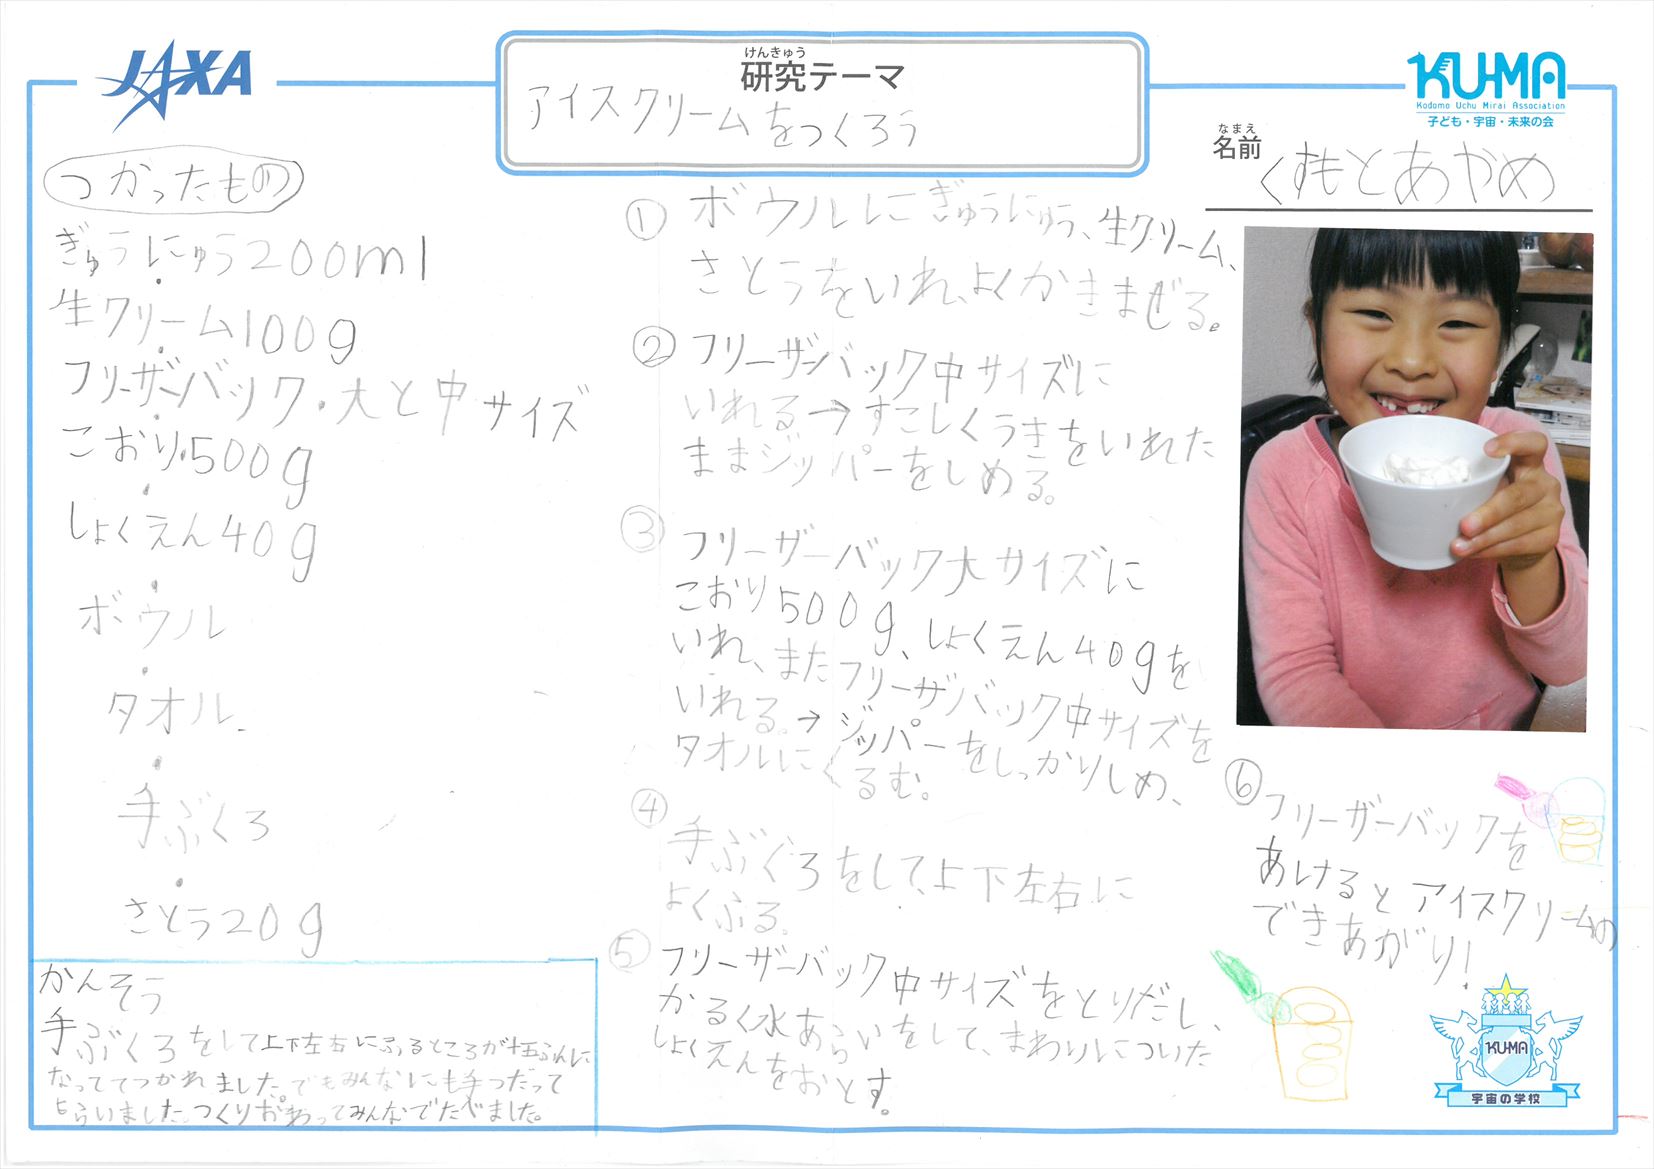 JAXA
けんきゅう
研究テーマ
アイスクリームをつくろう
KU-MA
Kodomo Uchu Mirai Association
子ども・宇宙・未来の会
なまえ
名前
くすもとあやめ
つかったもの
ぎゅうにゅう200ml
・
生クリーム100g
・
フリーザーバック・大と中サイズ
・
こおり500g
・
しょくえん40g
・
ボウル
・
タオル
・
手ぶくろ
・
さとう20g
かんそう
手ぶくろをして上下左右にふるところが十五ふんに
なっててつかれました。でもみんなにも手つだって
もらいました。つくりおわってみんなでたべました。
① ボウルにぎゅうにゅう、生クリーム、
さとうをいれ、よくかきまぜる。
② フリーザーバック中サイズに
いれる→すこしくうきをいれた
ままジッパーをしめる。
③ フリーザーバック大サイズに
こおり500g、しょくえん40gを
いれ、またフリーザバック中サイズを
いれる。→ジッパーをしっかりしめ、
タオルにくるむ。
④ 手ぶくろをして、上下左右に
よくふる。
⑤ フリーザーバック中サイズをとりだし、
かるく水あらいをして、まわりについた
しょくえんをおとす。
⑥ フリーザーバックを
あけるとアイスクリームの
できあがり!
KU-MA
宇宙の学校